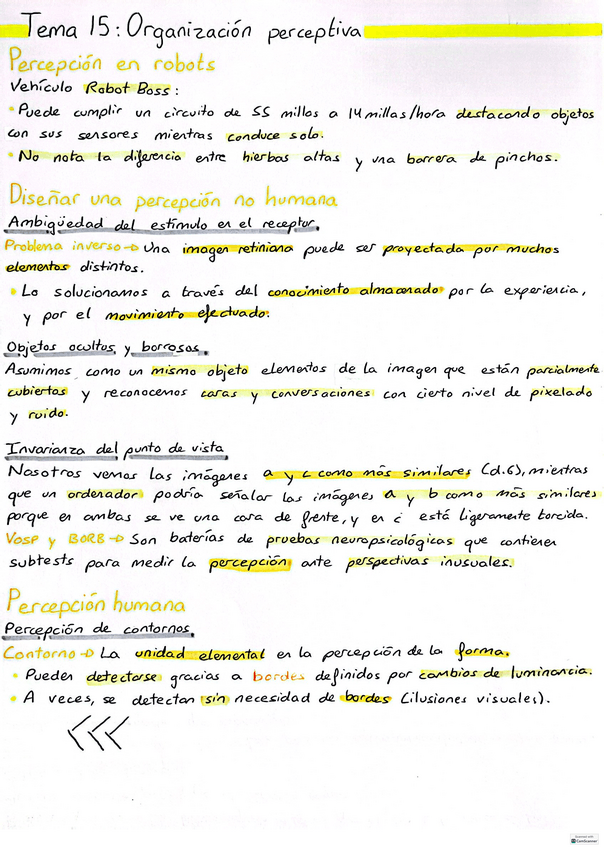 Tema 15: Organización perceptiva
Percepción en robots
Vehículo Robot Boss:
• Puede cumplir un circuito de 55 millas a 14 millas/hora destacando objetos
con sus sensores mientras conduce solo.
• No nota la diferencia entre hierbas altas y una barrera de pinchos.
Diseñar una percepción no humana
Ambigüedad del estímulo en el receptor.
Problema inverso → Una imagen retiniana puede ser proyectada por muchos
elementos distintos.
• Lo solucionamos a través del conocimiento almacenado por la experiencia,
y por el movimiento efectuado.
Objetos ocultos y borrosos.
Asumimos como un mismo objeto elementos de la imagen que están parcialmente
cubiertos y reconocemos caras y conversaciones con cierto nivel de pixelado
y ruido.
Invarianza del punto de vista
Nosotros vemos las imágenes a y c como más similares (d.6), mientras
que un ordenador podría señalar las imágenes a y b como más similares
porque en ambas se ve una cara de frente, y en c está ligeramente torcida.
VOSP y BORB → Son baterías de pruebas neuropsicológicas que contienen
subtests para medir la percepción ante perspectivas inusuales.
Percepción humana
Percepción de contornos.
Contorno → La unidad elemental en la percepción de la forma.
• Pueden detectarse gracias a bordes definidos por cambios de luminancia.
• A veces, se detectan sin necesidad de bordes (ilusiones visuales).
Scanned with
CamScanner